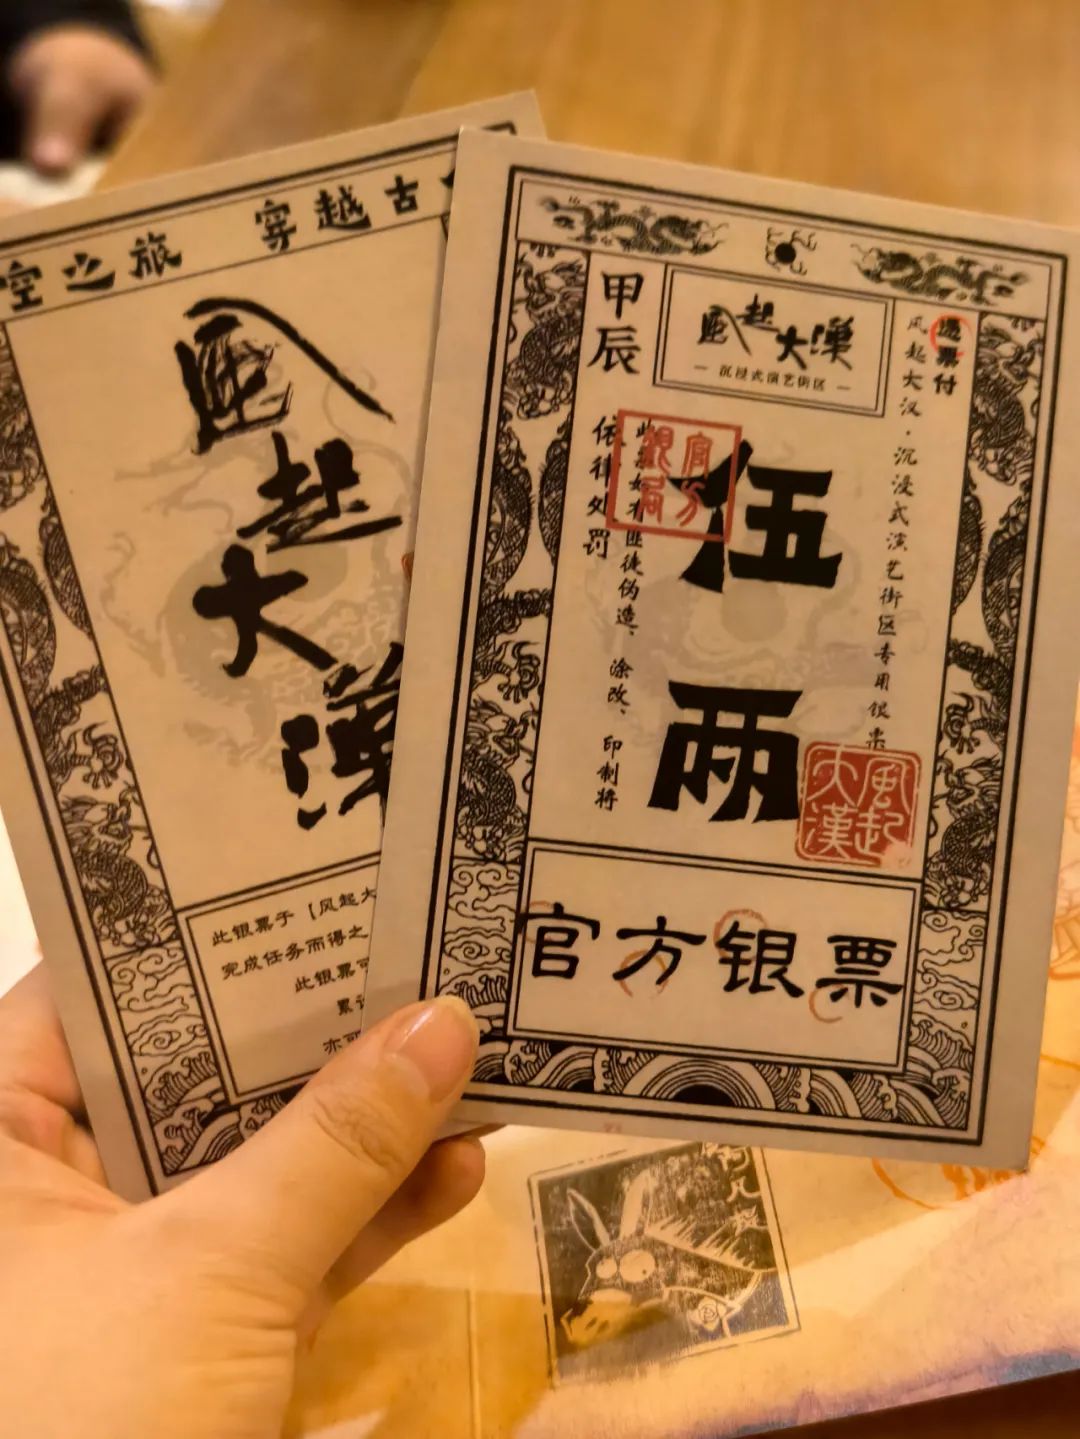 空之旅 穿越古
风起大漢
此银票于【风起大
完成任务而得之
此银票可
累计
亦可
甲辰
风起大漢
— 沉浸式演艺街区 —
遇票付
风起大汉·沉浸式演艺街区专用银票
伍两
此票如有匪徒伪造、涂改、印制将
依律处罚
官方
風起大漢
官方银票